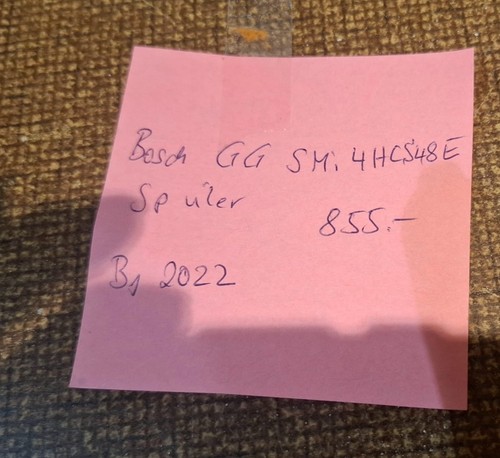 Bosch GG SMi 4HCS48E
Spüler 855.-
Bj 2022